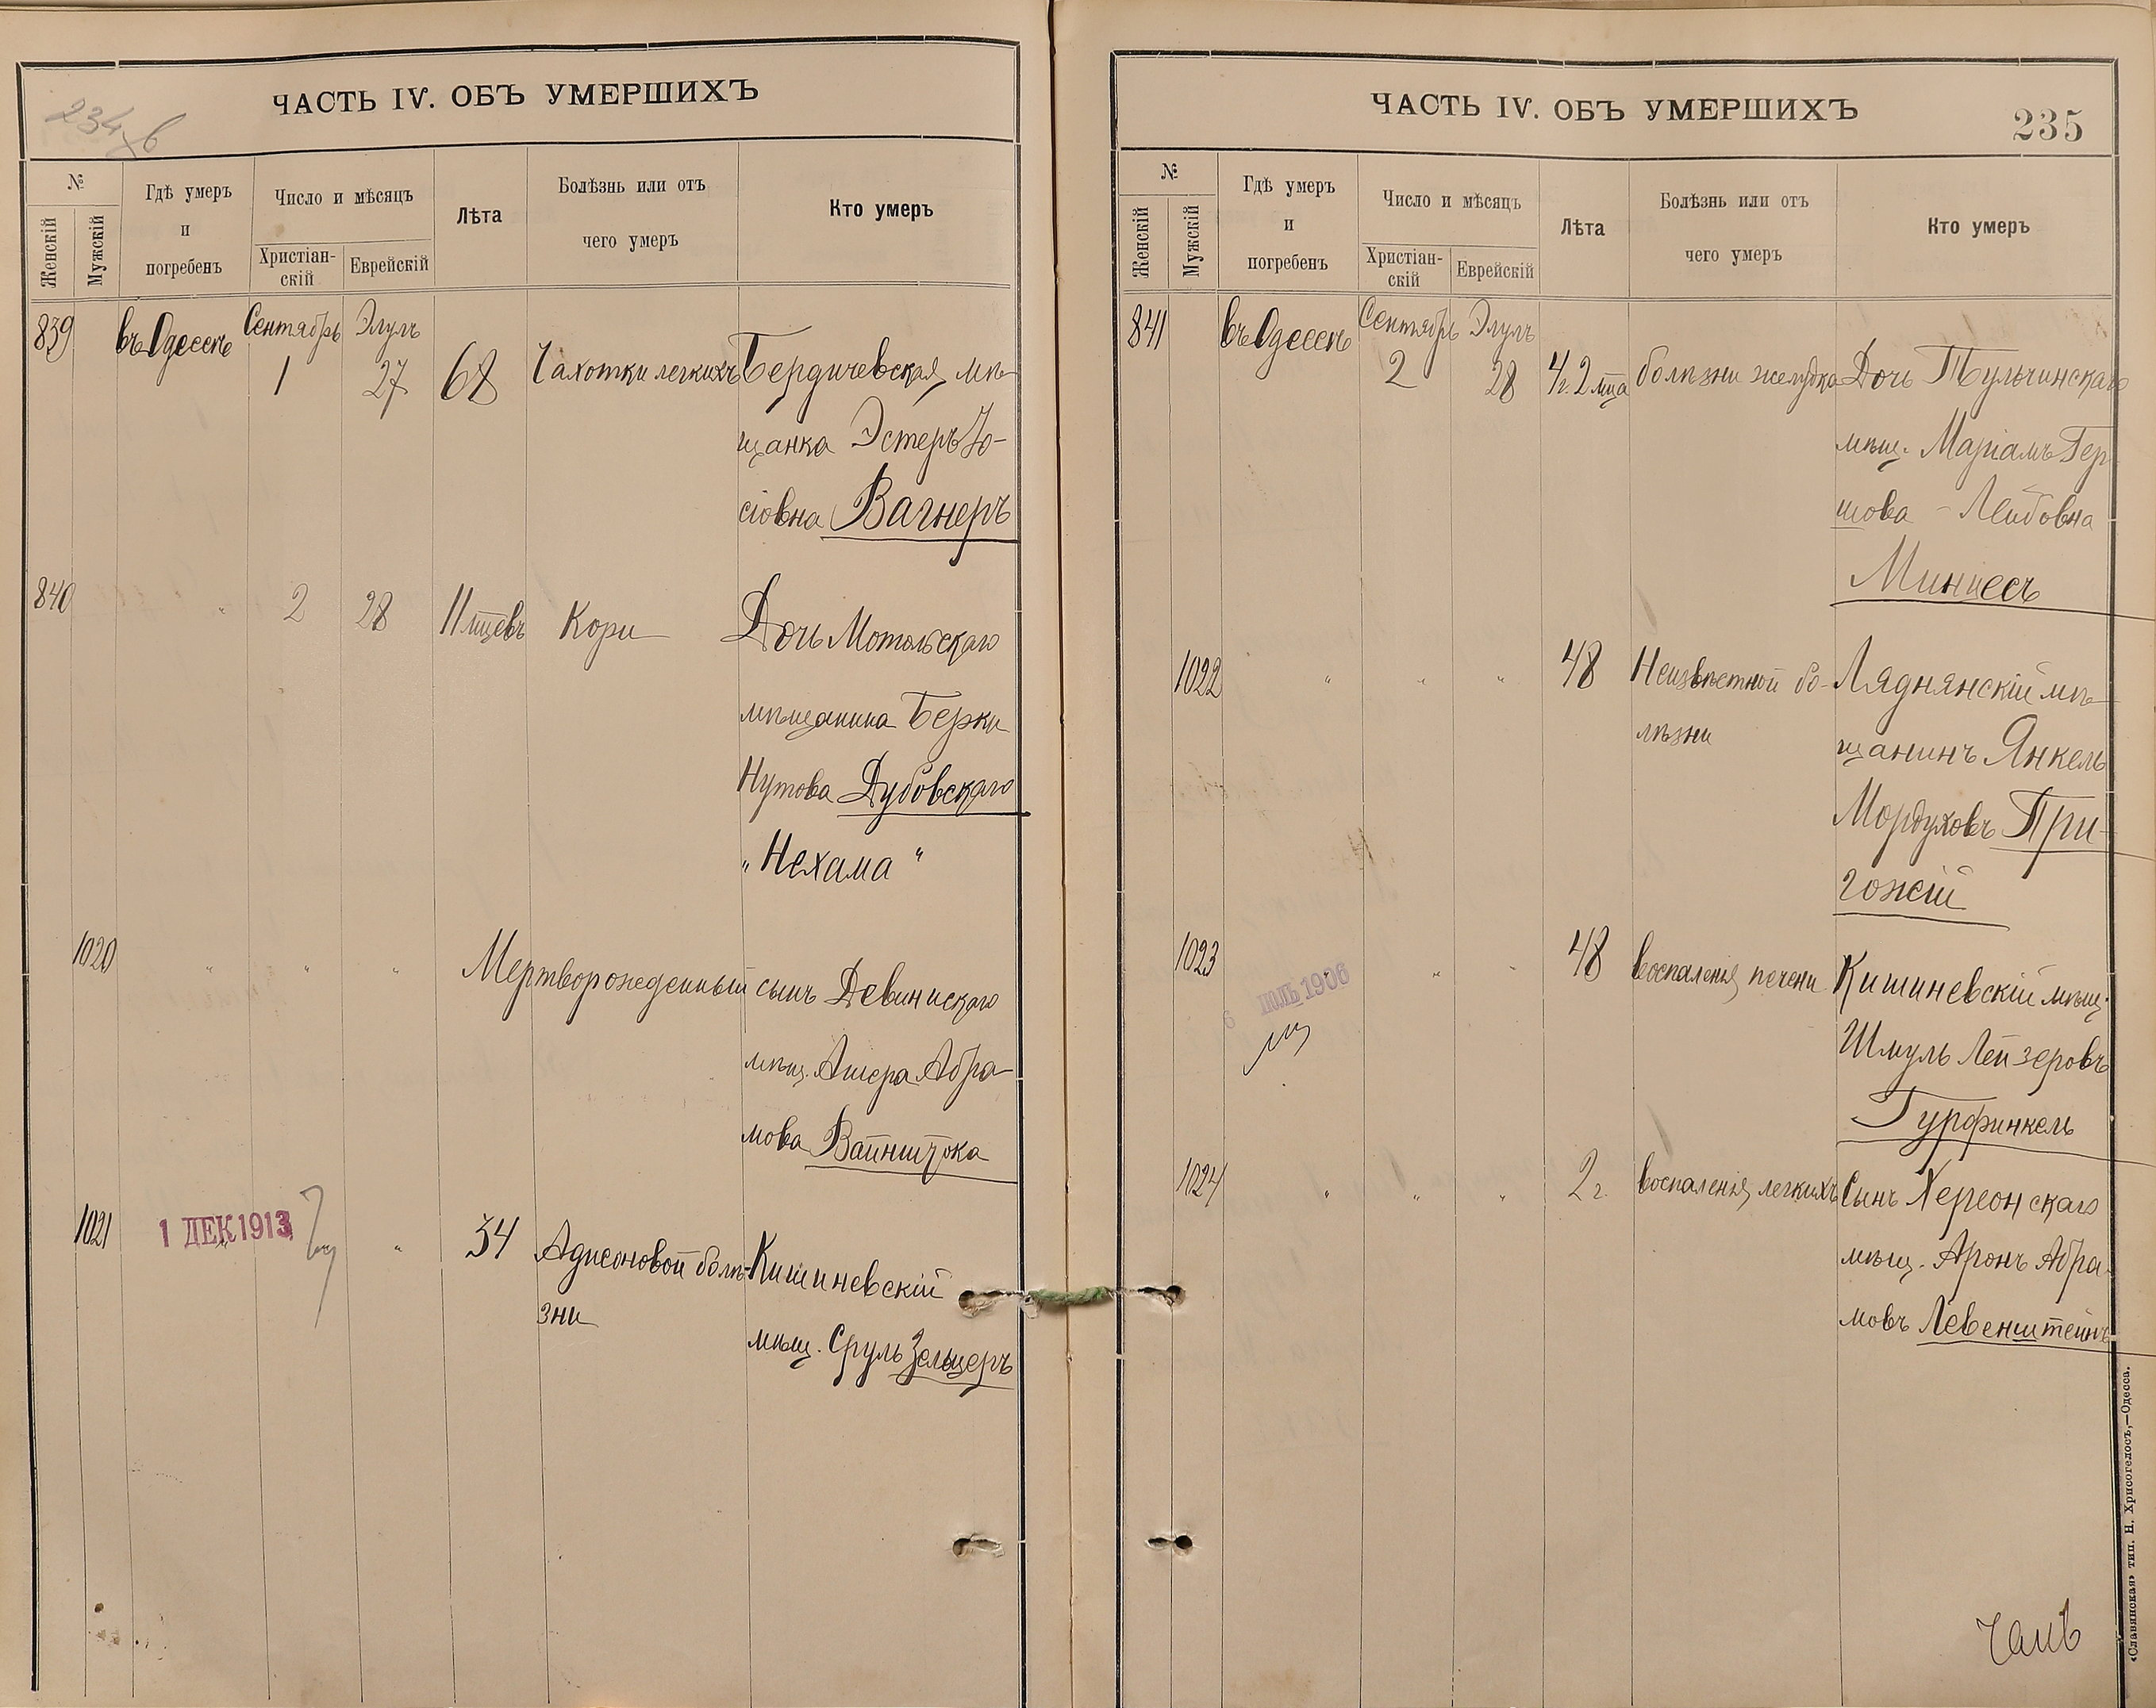 234 в
ЧАСТЬ IV. ОБЪ УМЕРШИХЪ
№
Женскій
Мужскій
Гдѣ умеръ
и
погребенъ
Число и мѣсяцъ
Христіан-
скій
Еврейскій
Лѣта
Болѣзнь или отъ
чего умеръ
Кто умеръ
839 въ Одессѣ Сентябрь Элулъ
1 27 68 Чахотки легкихъ Бердичевская мѣ-
щанка Эстеръ Іо-
сіовна Вагнеръ
840 " 2 28 11 мцевъ Кори Дочь Мотольскаго
мѣщанина Берки
Нутова Дубовскаго
"Нехама"
1020 " " " Мертворожденный сынъ Девинискаго
мѣщ. Ашера Абра-
мова Вайнштока
1021 " " 34 Адисоновой болѣ- Кишиневскій
1 ДЕК 1913
зни
мѣщ. Сруль Зельцеръ
ЧАСТЬ IV. ОБЪ УМЕРШИХЪ
235
№
Женскій
Мужскій
Гдѣ умеръ
и
погребенъ
Число и мѣсяцъ
Христіан-
скій
Еврейскій
Лѣта
Болѣзнь или отъ
чего умеръ
Кто умеръ
841 въ Одессѣ Сентябрь Элулъ
2 28 4 г. 2 мца болѣзни желудка Дочь Тульчинскаго
мѣщ. Маріамъ Гер
шова - Лейбовна
Миниесъ
1022 " " " 48 Неизвѣстной бо- Ляднянскій мѣ-
лѣзни
щанинъ Янкель
Мордуховъ При-
гожій
1023 " " " 48 воспаленія печени Кишиневскій мѣщ.
6 ІЮЛЬ 1906
Шмуль Лейзеровъ
Гурфинкель
1024 " " " 2 г. воспаленія легкихъ Сынъ Херсонскаго
мѣщ. Аронъ Абра-
мовъ Левенштейнъ
«Славянская» тип. Н. Хрисогелосъ,—Одесса.